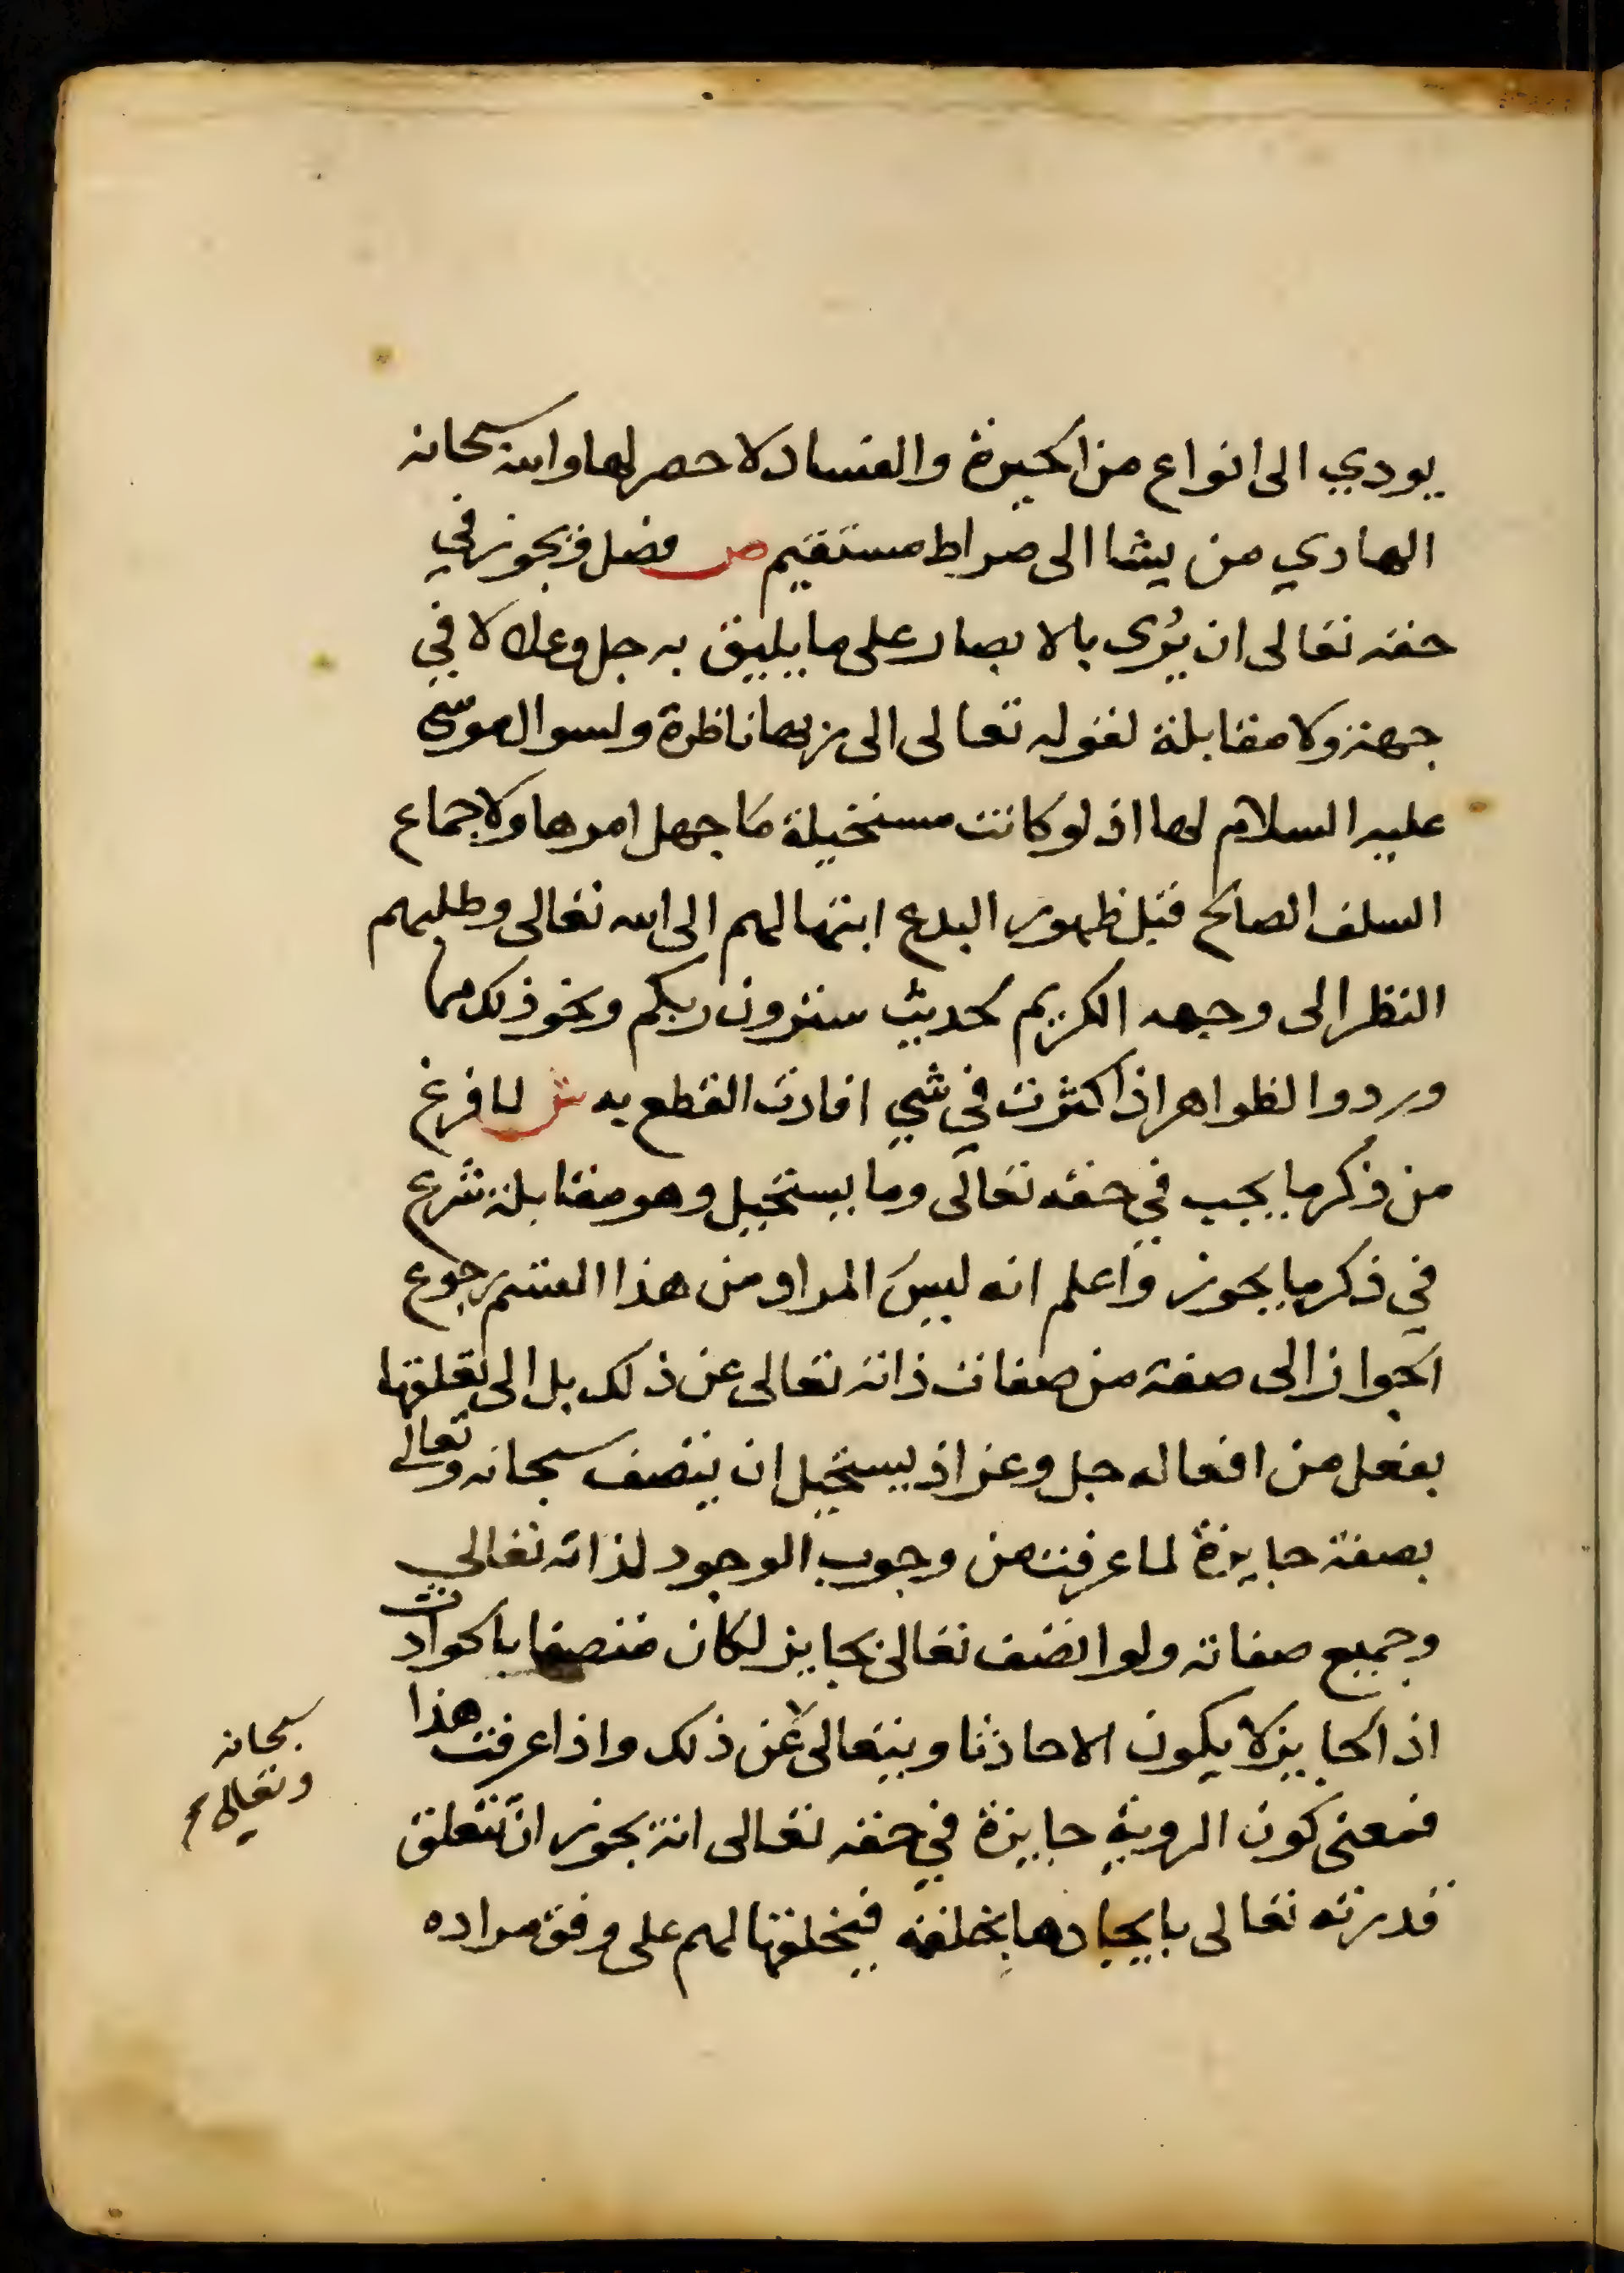 يودي الى انواع من الحيرة والفساد لا حصر لها والله سبحانه
الهادي من يشا الى صراط مستقيم ص فصل ويجوز في
حقه تعالى ان يُرى بالابصار على ما يليق به جل وعلا لا في
جهة ولا مقابلة لقوله تعالى الى ربها ناظرة ولسوال موسى
عليه السلام لها اذ لو كانت مستحيلة ما جهل امرها ولاجماع
السلف الصالح قبل ظهور البدع ابتهالهم الى الله تعالى وطلبهم
النظر الى وجهه الكريم لحديث سترون ربكم ونحو ذلك مما
ورد والظواهر اذا كثرت في شي افادت القطع به ش لما فرغ
من ذكر ما يجب في حقه تعالى وما يستحيل وهو مقابله شرع
في ذكر ما يجوز واعلم انه ليس المراد من هذا القسم رجوع
الجواز الى صفة من صفات ذاته تعالى عن ذلك بل الى تعلقها
بفعل من افعاله جل وعز اذ يستحيل ان يتصف سبحانه وتعالى
بصفة جايزة لما عرفت من وجوب الوجود لذاته تعالى
وجميع صفاته ولو اتصف تعالى بجايز لكان متصفا بالحوادث
اذ الجايز لا يكون الا حادثا ويتعالى عن ذلك واذا عرفت هذا
سبحانه
وتعالى
فمعنى كون الروية جايزة في حقه تعالى انه يجوز ان تتعلق
قدرته تعالى بايجادها بخلقه فيخلقها لهم على وفق مراده